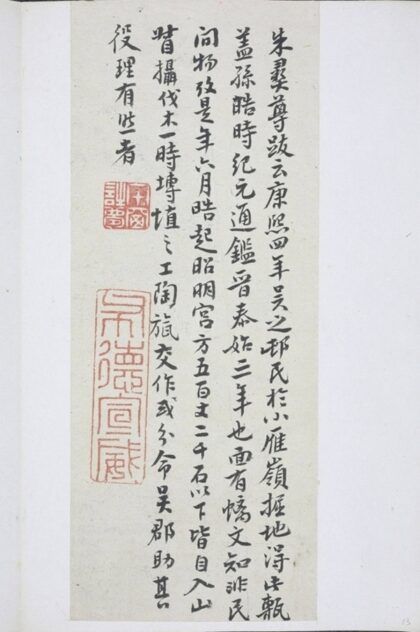 朱彝尊跋云康熙四年吴之邨民於小雁嶺掘地得此甎
蓋孫晧時紀元通鑑晉泰始二年也面有文知非民
間物攷是年六月晧起昭明宮方五百丈二千石以下皆自入山
督攝伐木一時塼埴之工陶瓬交作或分令吳郡助其
役理有然者
德宣威